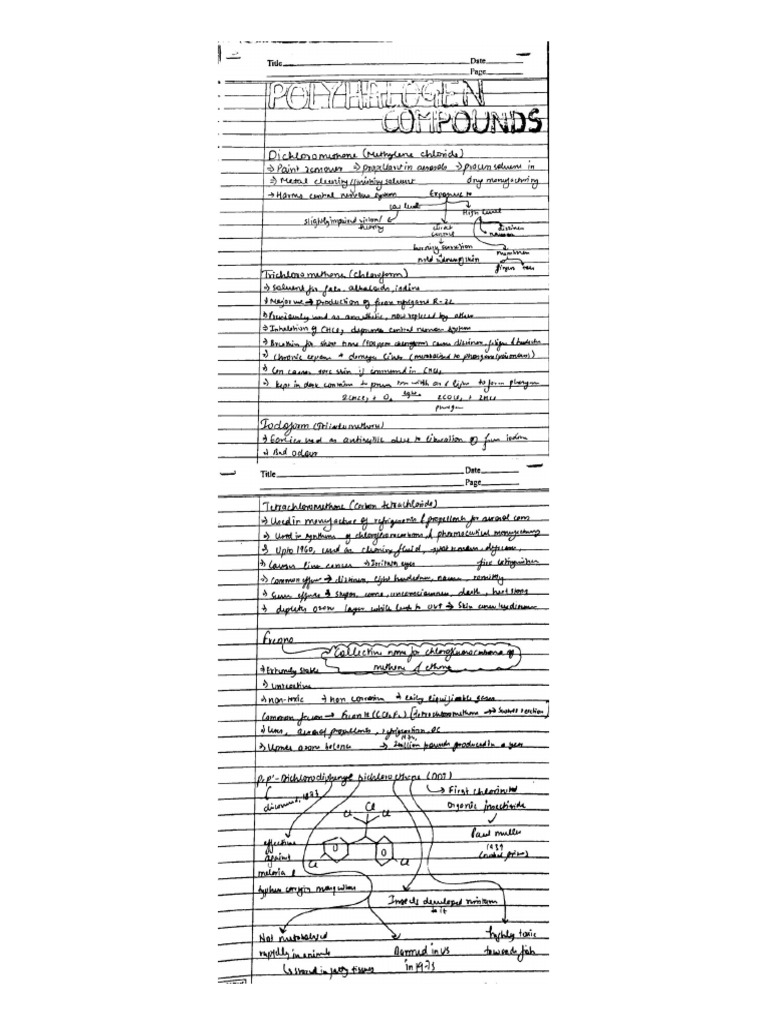 Title Date
Page
POLYHALOGEN
COMPOUNDS
Dichloromethane (Methylene chloride)
→ Paint remover → propellent in aerosols → process solvent in
→ Metal cleaning/finishing solvent drug manufacturing
→ Harms central nervous system Exposure to
Low level High level
slightly impaired vision/ direct dizziness
hearing contact nausea
burning sensation numbness
mild redness of skin fingers toes
Trichloromethane (Chloroform)
→ Solvent for fats, alkaloids, iodine
→ Major use → production of freon refrigerant R-22
→ Previously used as anaesthetic, now replaced by ether
→ Inhalation of CHCl3 depresses central nervous system
→ Breathing for short time causes dizziness, fatigue & headache
→ Chronic exposure → damages liver (metabolised to phosgene (poisonous))
→ Can cause sore skin if immersed in CHCl3
→ kept in dark container to light to form phosgene
2CHCl3 + O2 light 2COCl2 + 2HCl
phosgene
Iodoform (Triiodomethane)
→ Earlier used as antiseptic due to liberation of free iodine
→ Bad odour
Title Date
Page
Tetrachloromethane (Carbon tetrachloride)
→ Used in manufacture of refrigerants & propellants for aerosol cans
→ Used in synthesis of chlorofluorocarbons & pharmaceutical manufacturing
→ Upto 1960, used as cleaning fluid, spot remover, degreaser,
→ Causes liver cancer → Irritate eyes fire extinguisher
→ Common effects → dizziness, light headedness, nausea, vomiting
→ coma, unconsciousness, death,
→ depletes ozone layer which leads to UVR → Skin cancer/eye disease
Freons
Collective name for chlorofluorocarbons of
methane & ethane
→ Extremely stable
→ unreactive
→ non-toxic → non corrosive → easily liquifiable gases
Common freon → Freon 12 (CCl2F2) [Tetrachloromethane → Swarts reaction]
→ Uses, aerosol propellants, refrigeration, AC
→ Upsets ozone balance → 2 billion pounds produced in a year
1974,
p,p'-Dichlorodiphenyl trichloroethane (DDT)
discovered, 1873 → First chlorinated
organic insecticide
Cl
Cl Cl
Paul Muller
1939
(nobel prize)
effective
against
malaria &
typhus carrying mosquitoes
Cl Cl
Insects developed resistance
to it
Not metabolised Banned in US highly toxic
rapidly in animals in 1973 towards fish
↳ stored in fatty tissues